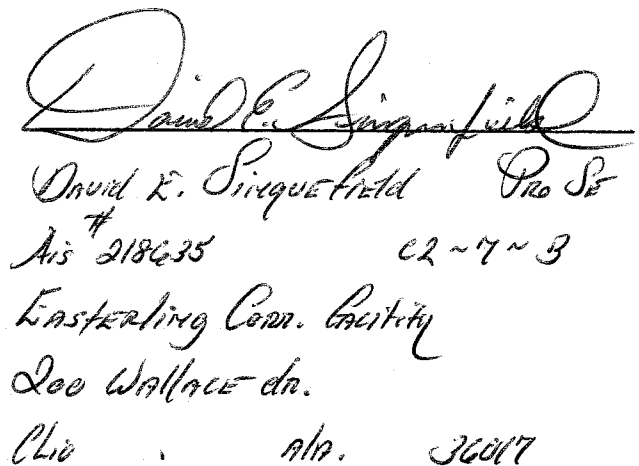 David E. Sinquefield
David E. Sinquefield Pro Se
Ais # 218635 C2~7~B
Easterling Corr. Facitity
200 Wallace dr.
Clio Ala. 36017